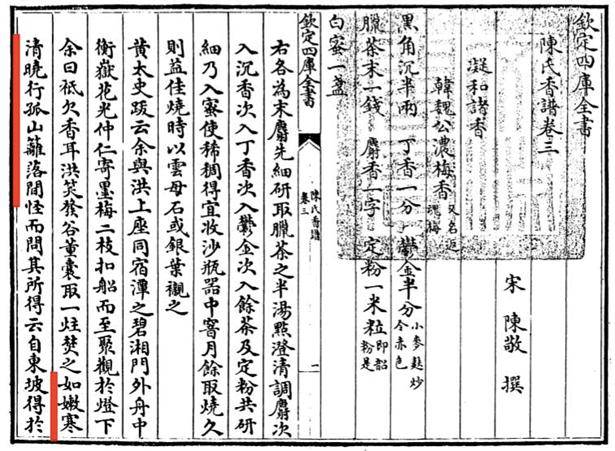 欽定四庫全書
陳氏香譜卷三
宋 陳敬 撰
凝和諸香
韓魏公濃梅香 又名返魂梅
黑角沉半兩 丁香一分 鬱金半分 小麥麩炒令赤色
臘茶末一錢 麝香一字 定粉一米粒 即韶粉是
白蜜一盞
欽定四庫全書 陳氏香譜 卷三 一
右各為末麝先細研取臘茶之半湯點澄清調麝次
入沉香次入丁香次入鬱金次入餘茶及定粉共研
細乃入蜜使稀稠得宜收沙瓶器中窨月餘取燒久
則益佳燒時以雲母石或銀葉襯之
黄太史跋云余與洪上座同宿潭之碧湘門外舟中
衡嶽花光仲仁寄墨梅二枝扣船而至聚觀於燈下
余曰祗欠香耳洪笑發谷董囊取一炷焚之如嫩寒
清曉行孤山籬落間怪而問其所得云自東坡得於